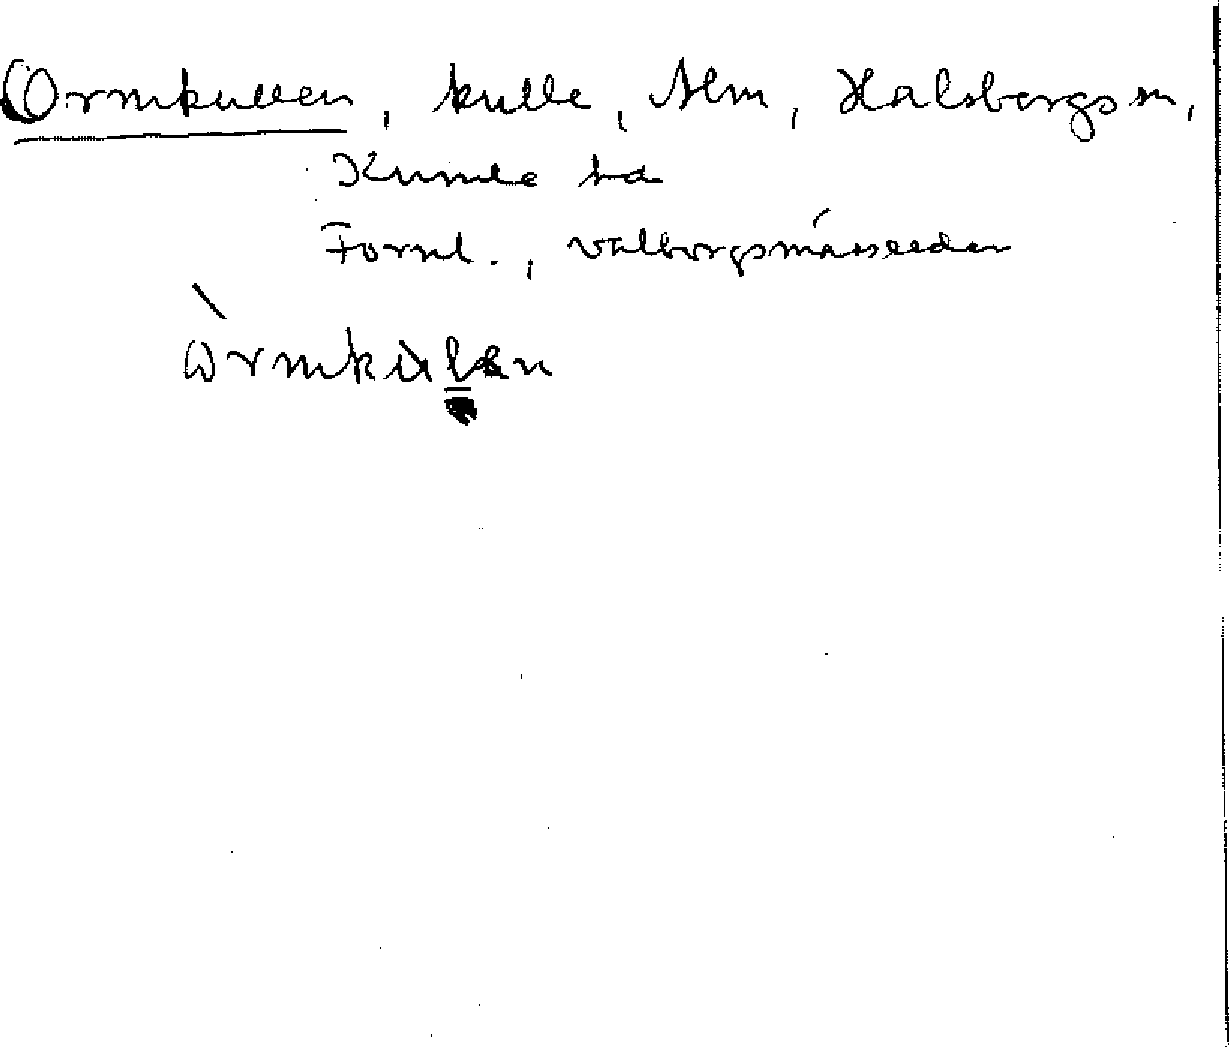 Ormkullen, kulle, Alm, Halsbergs sn,
Kumla hd
Fornl., valborgsmässeeldar